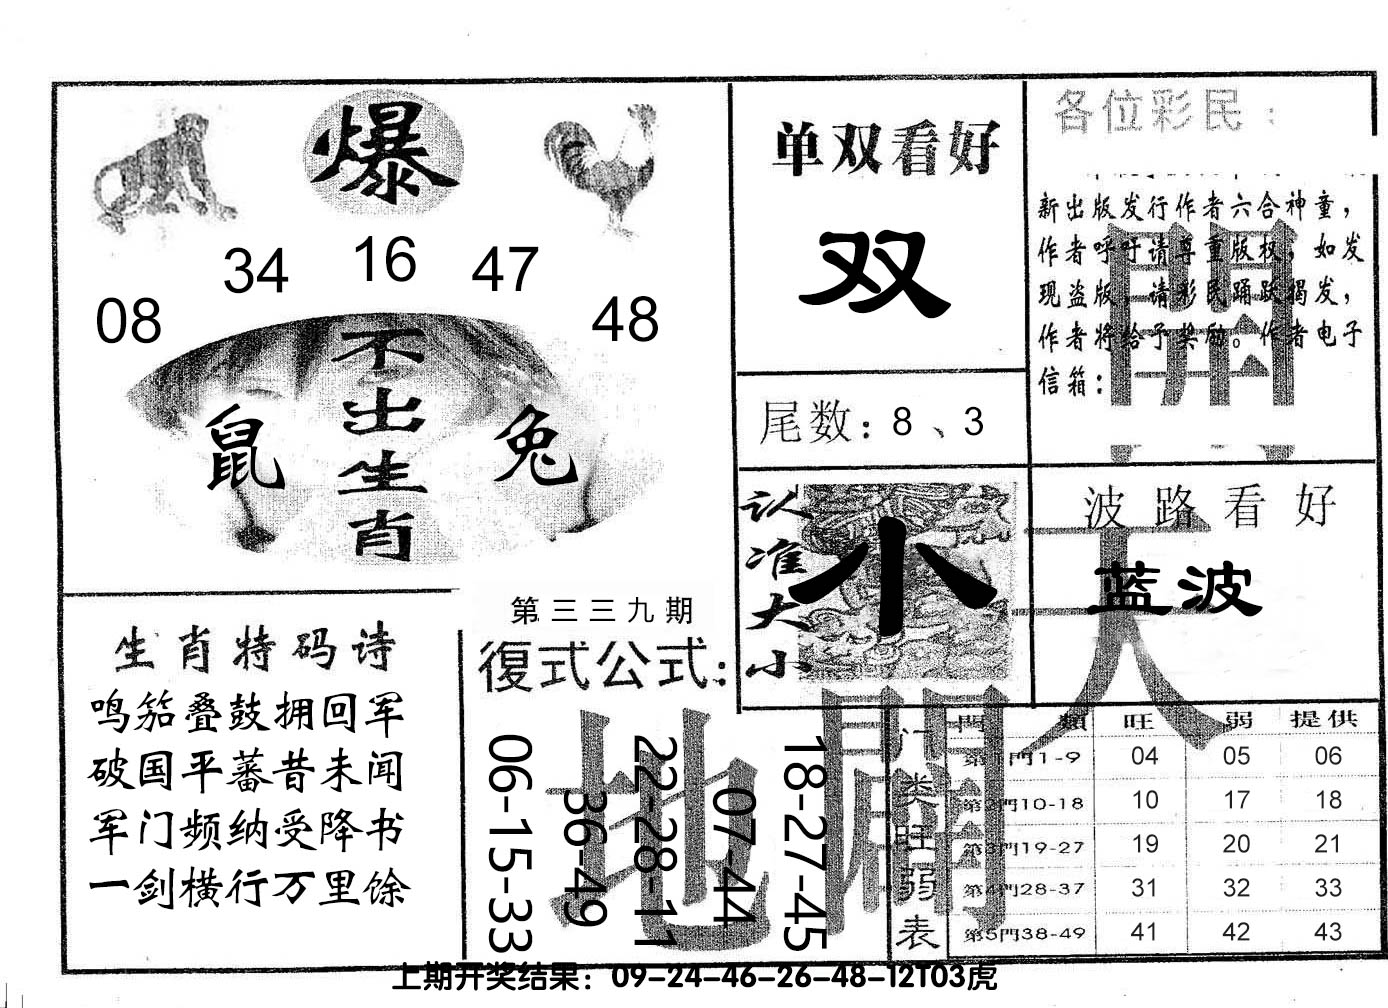 爆
08 34 16 47 48
不出生肖
鼠 兔
单双看好
双
尾数：8、3
各位彩民：
新出版发行作者六合神童，
作者呼吁请尊重版权，如发
现盗版，请彩民踊跃揭发，
作者将给予奖励。作者电子
信箱：
認准大小
小
波路看好
蓝波
生肖特码诗
鸣笳叠鼓拥回军
破国平蕃昔未闻
军门频纳受降书
一剑横行万里馀
第三三九期
復式公式：
06-15-33
36-49
22-28-11
07-44
18-27-45
天
地
開
门类旺弱表
門類 旺 弱 提供
第1門1-9 04 05 06
第2門10-18 10 17 18
第3門19-27 19 20 21
第4門28-37 31 32 33
第5門38-49 41 42 43
上期开奖结果：09-24-46-26-48-12T03虎